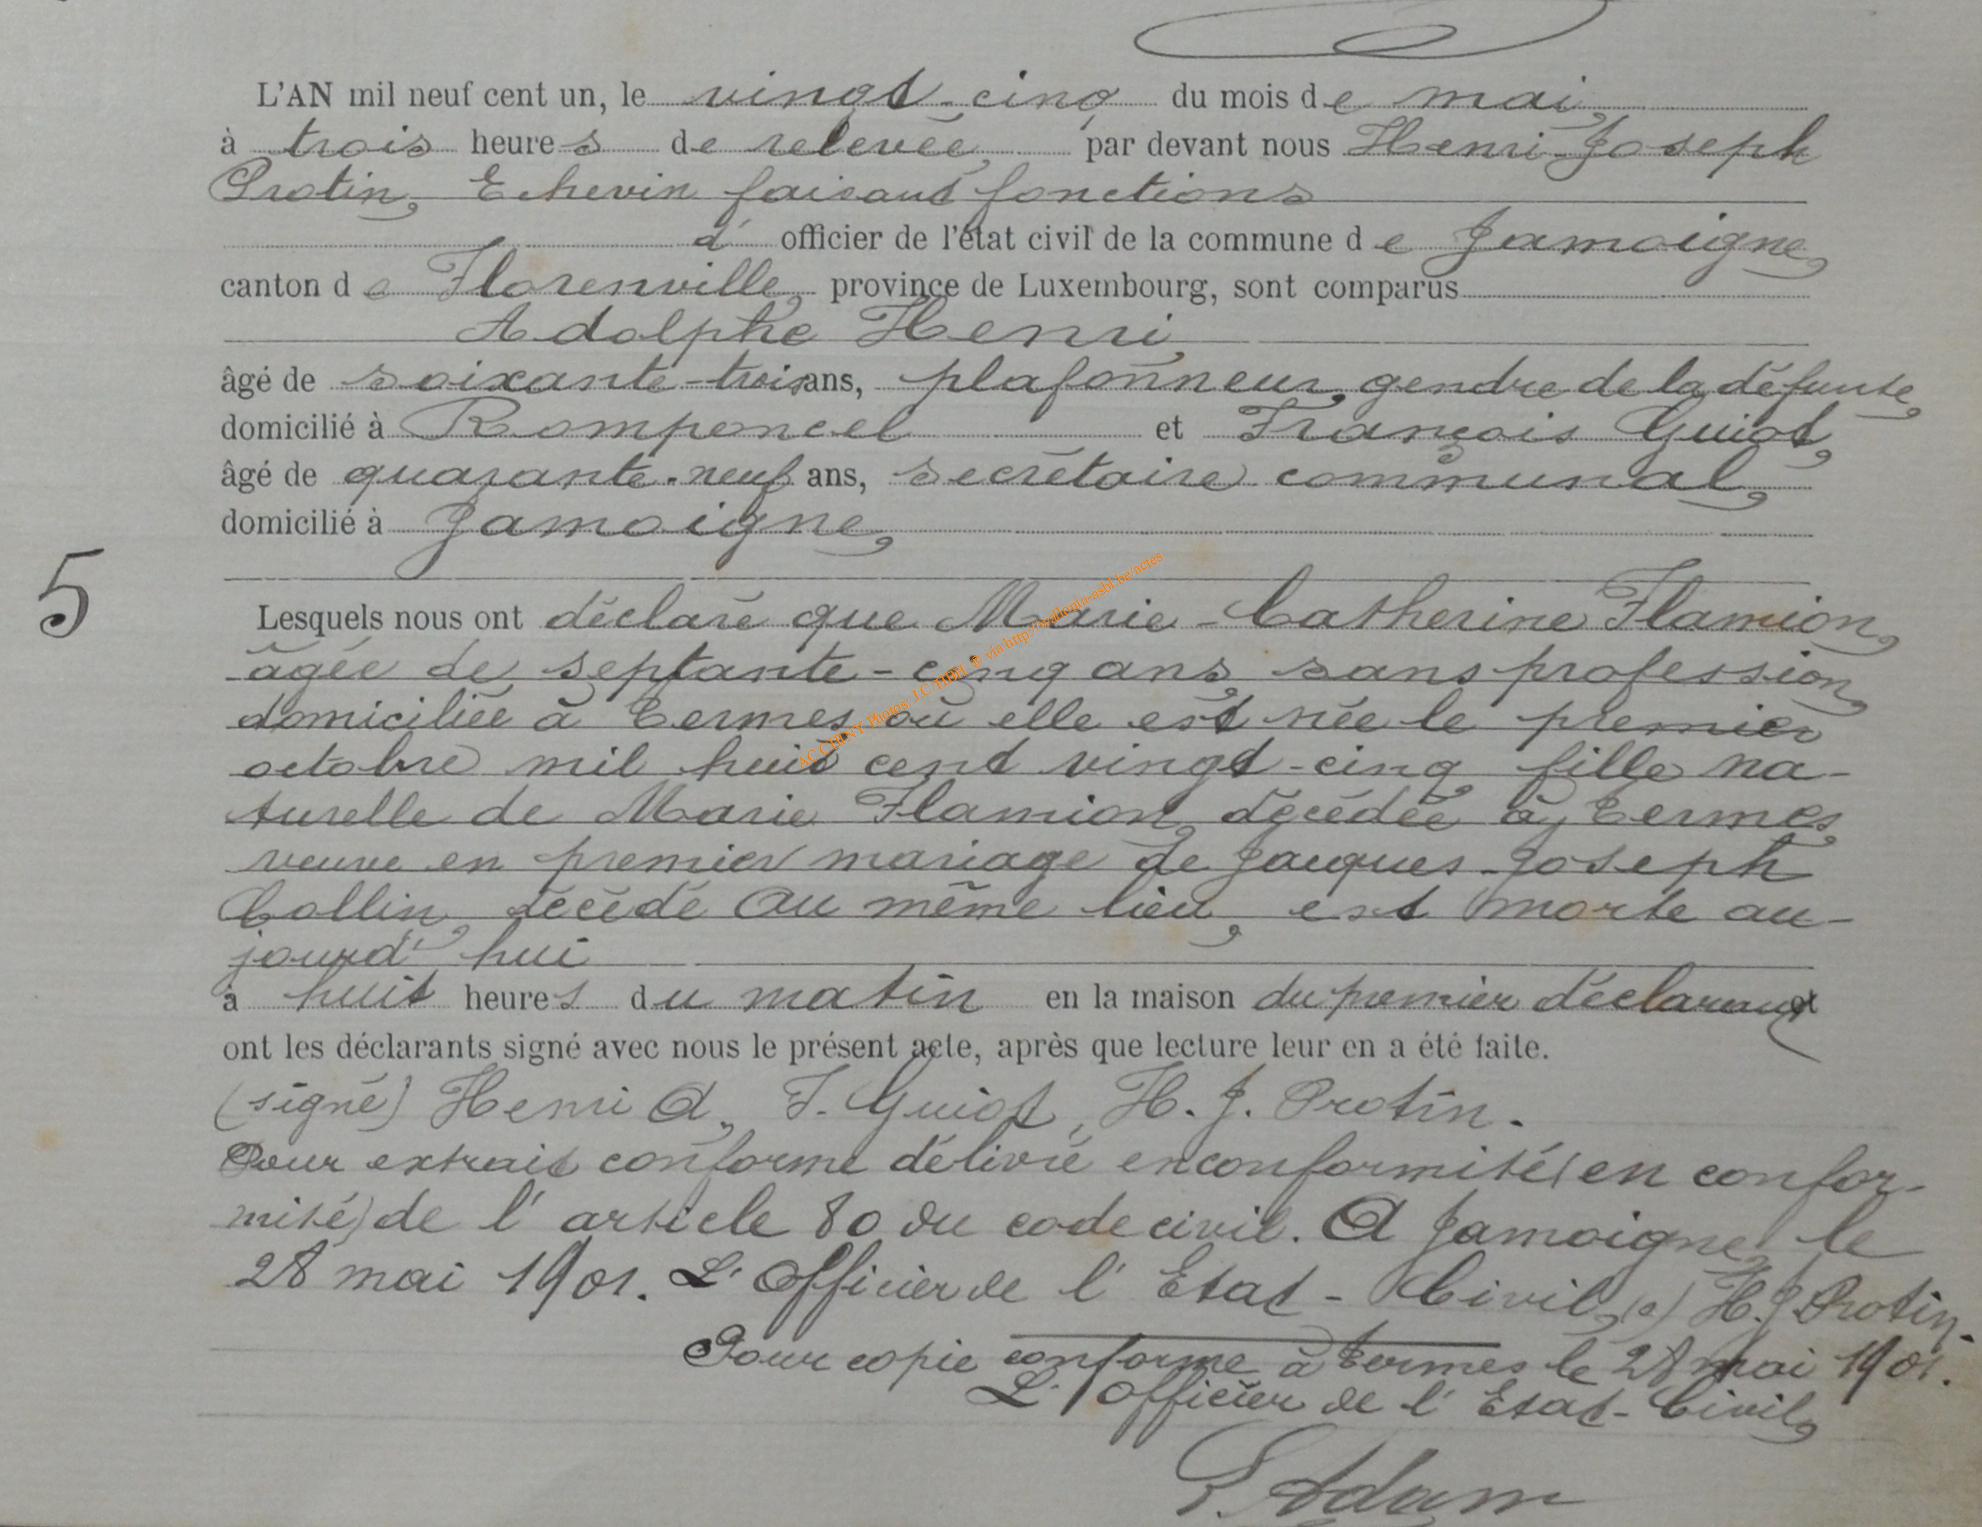 L'AN mil neuf cent un, le vingt-cinq du mois de mai,
à trois heures de relevée, par devant nous Henri-Joseph
Protin, Echevin faisant fonctions
d' officier de l'état civil de la commune de Jamoigne,
canton de Florenville, province de Luxembourg, sont comparus
Adolphe Henri,
âgé de soixante-trois ans, plafonneur, gendre de la défunte,
domicilié à Romponcel et François Guiot,
âgé de quarante-neuf ans, secrétaire communal,
domicilié à Jamoigne,
5
Lesquels nous ont déclaré que Marie-Catherine Flamion,
âgée de septante-cinq ans, sans profession,
domiciliée à Termes, où elle est née le premier
octobre mil huit cent vingt-cinq, fille na-
turelle de Marie Flamion, décédée à Termes,
veuve en premier mariage de Jacques-Joseph
Collin, décédé au même lieu, est morte au-
jourd'hui
à huit heures du matin en la maison du premier déclarant et
ont les déclarants signé avec nous le présent acte, après que lecture leur en a été faite.
(signé) Henri A, F. Guiot, H. J. Protin.
Pour extrait conforme délivré enconformité (en confor-
mité) de l'article 80 du code civil. A Jamoigne, le
28 mai 1901. L'Officier de l'Etat-Civil, (s) H. J. Protin.
Pour copie conforme à Termes le 28 mai 1901.
L'Officier de l'Etat-Civil,
Adam
AC CHINY Photos J.C TIBH © via http://wallonia-asbl.be/actes